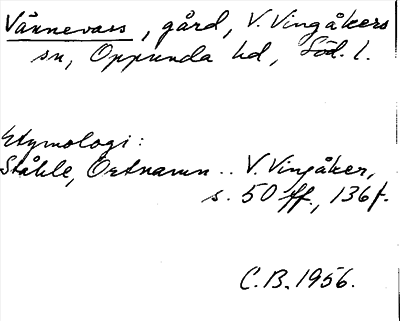 Vännevass, gård, V. Vingåkers
sn, Oppunda hd, Söd. l.
Etymologi:
Ståhle, Ortnamn .. V. Vingåker,
s. 50 ff., 136 f.
C.B. 1956.